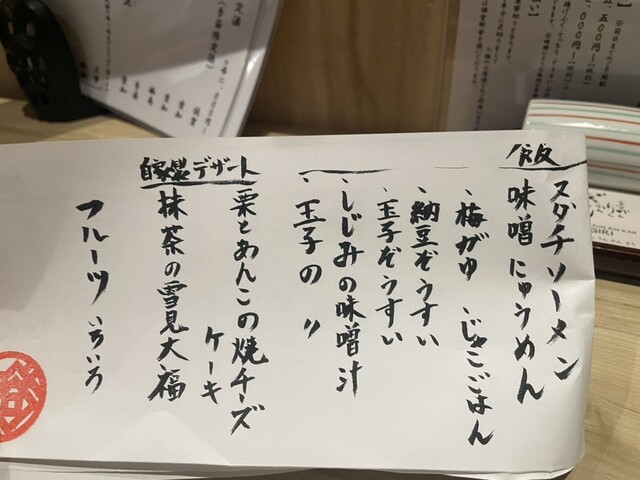 飯
スダチソーメン
味噌にゅうめん
・梅がゆ じゃこごはん
・納豆ぞうすい
・玉子ぞうすい
・しじみの味噌汁
・玉子の 〃
自家製デザート
栗とあんこの焼チーズ
ケーキ
抹茶の雪見大福
フルーツいろいろ